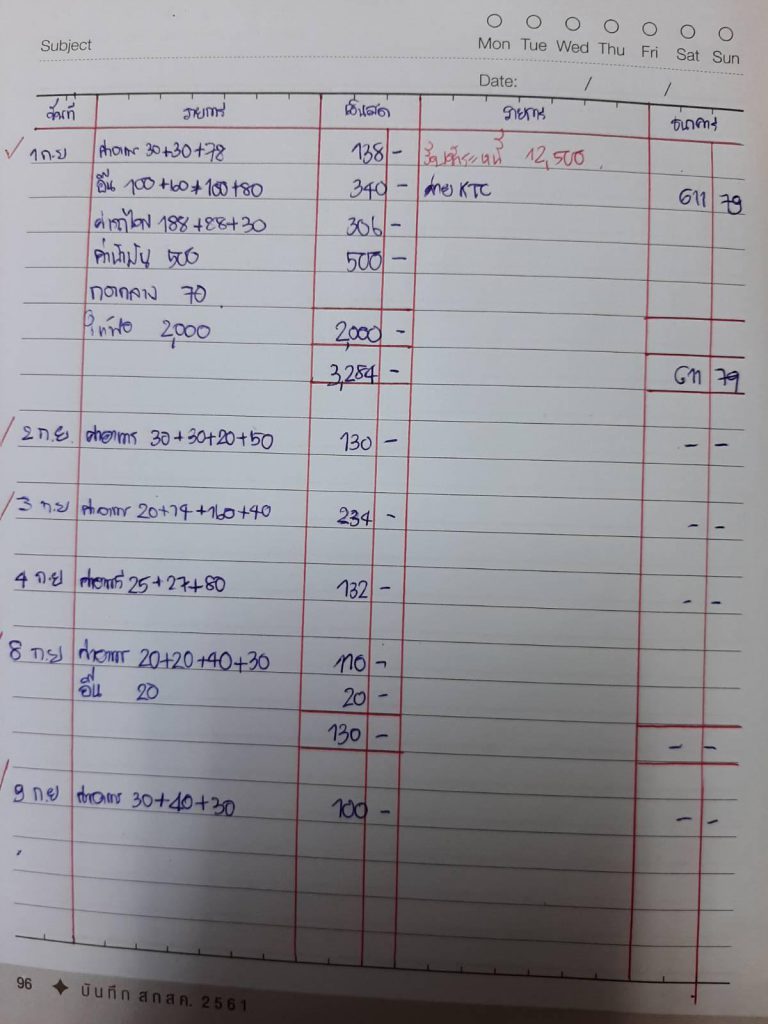 Subject Mon Tue Wed Thu Fri Sat Sun
Date: / /
วันที่ รายการ เงินสด รายการ ธนาคาร
1 ก.ย ค่าอาหาร 30+30+78 138 - 12,500
อื่น 100+60+100+80 340 - จ่าย KTC 611 79
ค่ารถไฟฟ้า 188+88+30 306 -
ค่าน้ำมัน 500 500 -
กองกลาง 70
ให้พ่อ 2,000 2,000 -
3,284 - 611 79
2 ก.ย. ค่าอาหาร 30+30+20+50 130 - - -
3 ก.ย ค่าอาหาร 20+14+160+40 234 - - -
4 ก.ย ค่าอาหาร 25+27+80 132 - - -
8 ก.ย ค่าอาหาร 20+20+40+30 110 -
อื่น 20 20 -
130 - - -
9 ก.ย ค่าอาหาร 30+40+30 100 - - -
96 บันทึก สกสค. 2561